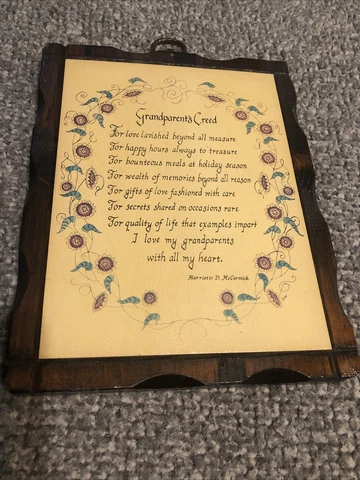 Grandparent's Creed
For love lavished beyond all measure
For happy hours always to treasure
For bounteous meals at holiday season
For wealth of memories beyond all reason
For gifts of love fashioned with care
For secrets shared on occasions rare
For quality of life that examples impart
I love my grandparents
with all my heart.
Harriette D. McCormick